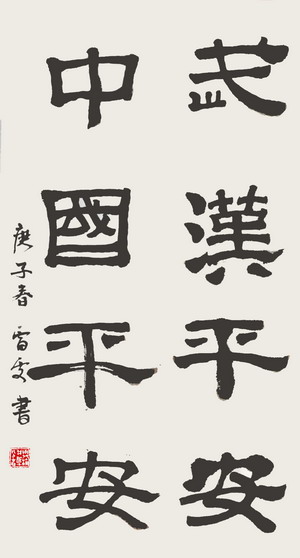 武漢平安
中國平安
庚子春雷雯書